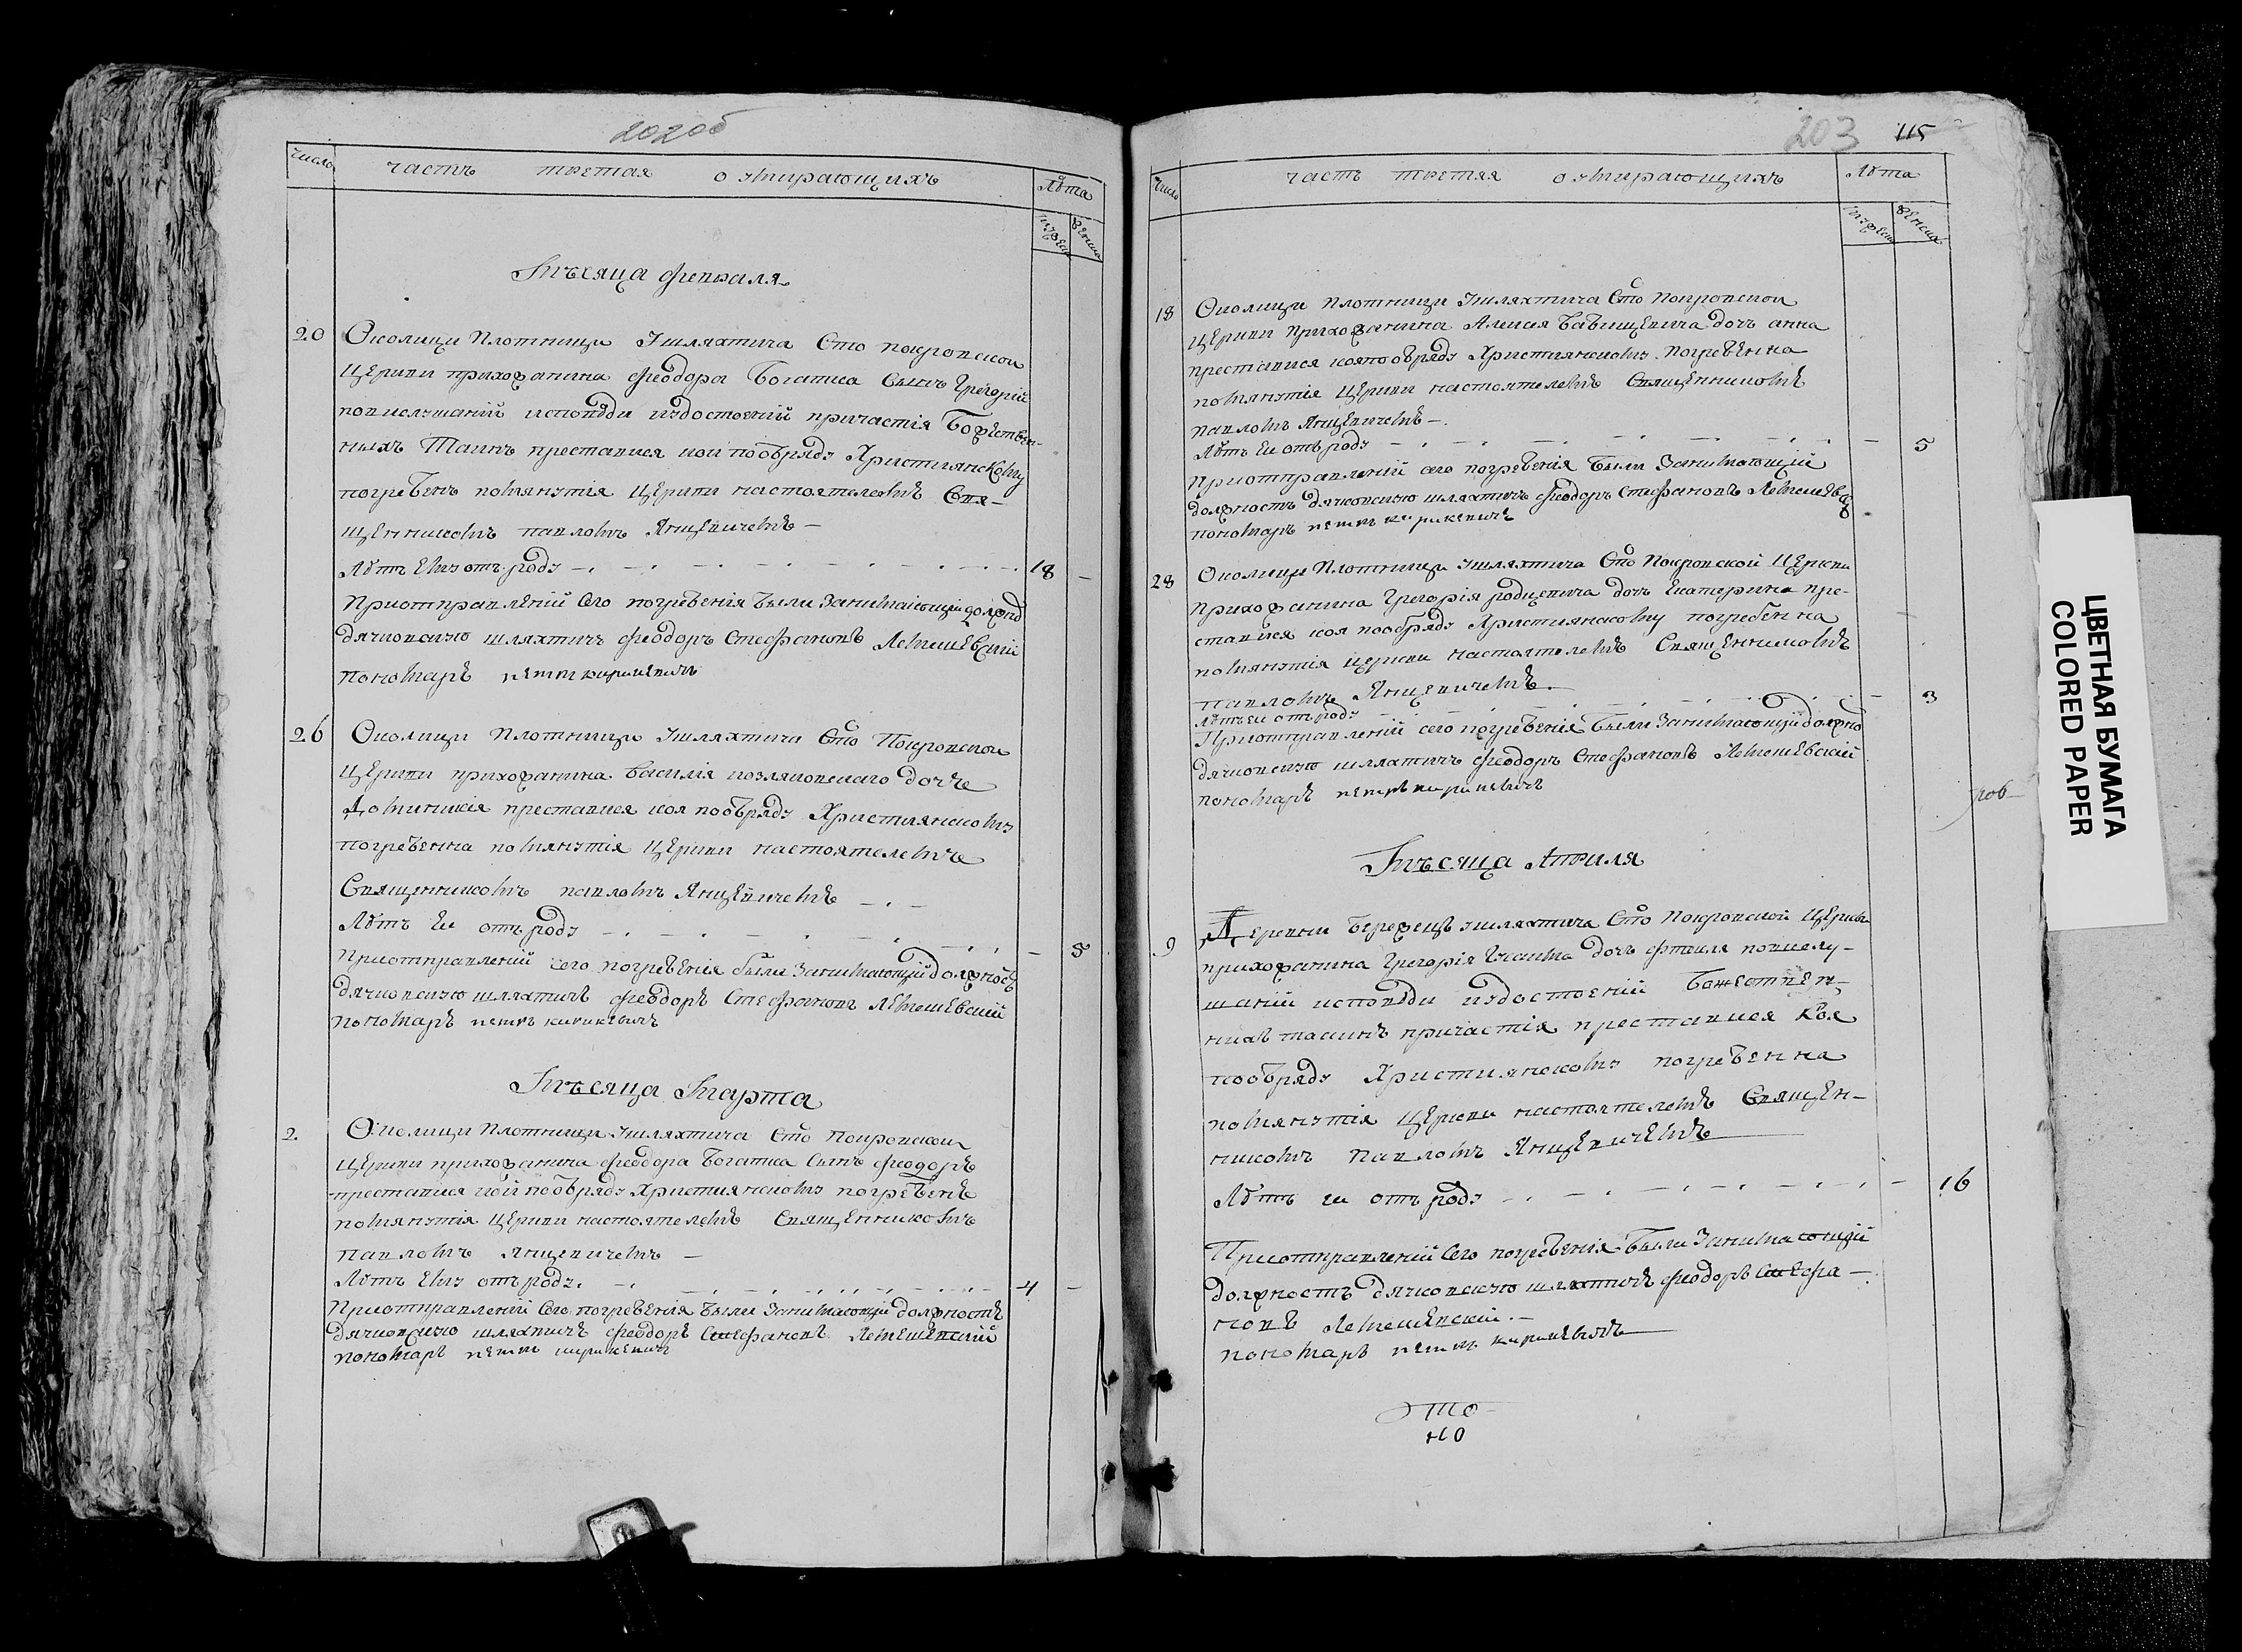 202об
Число
часть третая о умирающихъ
Лѣта
мужеск
женска
Мѣсяца февраля
20
Околици Плотници Ушляхтича Сто покровской
Церкви прихожанина Феодора Богатка Сынъ Григорий
повислушаний исповѣди иудостоений причастія Божествен-
ныхъ Таинъ преставися кой пообряду Християнскому
погребенъ помянутія Церкви настоятелемъ Свя-
щенникомъ павломъ Янцевичемъ —
Лѣтъ Ему отъ роду
18 –
Приотправлений Сего погребенія были Занимающий должнос
дячковскую шляхтичъ Феодоръ Стефановъ Лемешевский
пономаръ петръ кирикевичъ
26
Околици Плотници Ушляхтичи Сто Покровской
Церкви прихожанина Василія козляковскаго дочъ
Доминикія преставися коя пообряду Християнскому
погребенна помянутія Церкви настоятелемъ
Священникомъ павломъ Янцевичемъ
Лѣтъ Ей отъ роду
– 5
Приотправлений сего погребенія были Занимающий должност
дячковскую шляхтичъ Феодоръ Стефановъ Лемешевский
пономаръ петръ кирикевичъ
Мѣсяца Марта
2.
Околици Плотници Ушляхтича Сто Покровской
Церкви прихожанина Феодора Богатка Сынъ Феодоръ
преставися кой пообряду Християнскому погребенъ
помянутія Церкви настоятелемъ Священникомъ
павломъ Янцевичемъ —
Лѣтъ Ему отъ роду.
4 –
Приотправлений Сего погребенія были Занимающий должность
дячковскую шляхтичъ Феодоръ Стефановъ Лемешевский
пономаръ петръ кирикевичъ
203 115
Число
часть третяя о умирающихъ
Лѣта
мужеск
женска
18
Околици Плотници Ушляхтича Сто покровской
Церкви Прихожанина Алексея Бабищевича дочъ анна
преставися кояпообряду Християнскому погребенна
помянутія Церкви настоятелемъ Священникомъ
павломъ Янцевичемъ –.
Лѣтъ Ей отъ роду
– 5
Приотправлений сего погребенія были Занимающий
должность дячковскую шляхтичъ Феодоръ Стефановъ Лемешевс
пономаръ петръ кирикевичъ
28
Околици Плотници Ушляхтича Сто Покровской Церкви
прихожанина Григорія родцевича дочъ Екатерина пре-
ставися коя пообряду Християнскому погребенна
помянутія церкви настоятелемъ Священникомъ
павломъ Янцевичемъ.
Лѣтъ ей отъ роду
– 3
Приотправлений сего погребенія были Занимающий должно
дячковскую шляхтичъ Феодоръ Стефановъ Лемешевский
пономаръ петръ кирикевичъ
Мѣсяца Априля
9
Деревни Бережецѣ ушляхтича Сто Покровской Церкви
прихожанина Григорія дочъ повислу-
шаний исповѣди иудостоений Божествен-
нихъ таинъ причастія преставися коя
пообряду Християнскому погребенна
помянутія Церкви настоятелемъ Священ-
никомъ Павломъ Янцевичемъ
Лѣтъ ей отъ роду
16
Приотправлений Сего погребенія были Занимающий
должность дячковскую шляхтичъ Феодоръ Стефа-
новъ Лемешевский.–
пономаръ петръ кирикевичъ
ЦВЕТНАЯ БУМАГА
COLORED PAPER